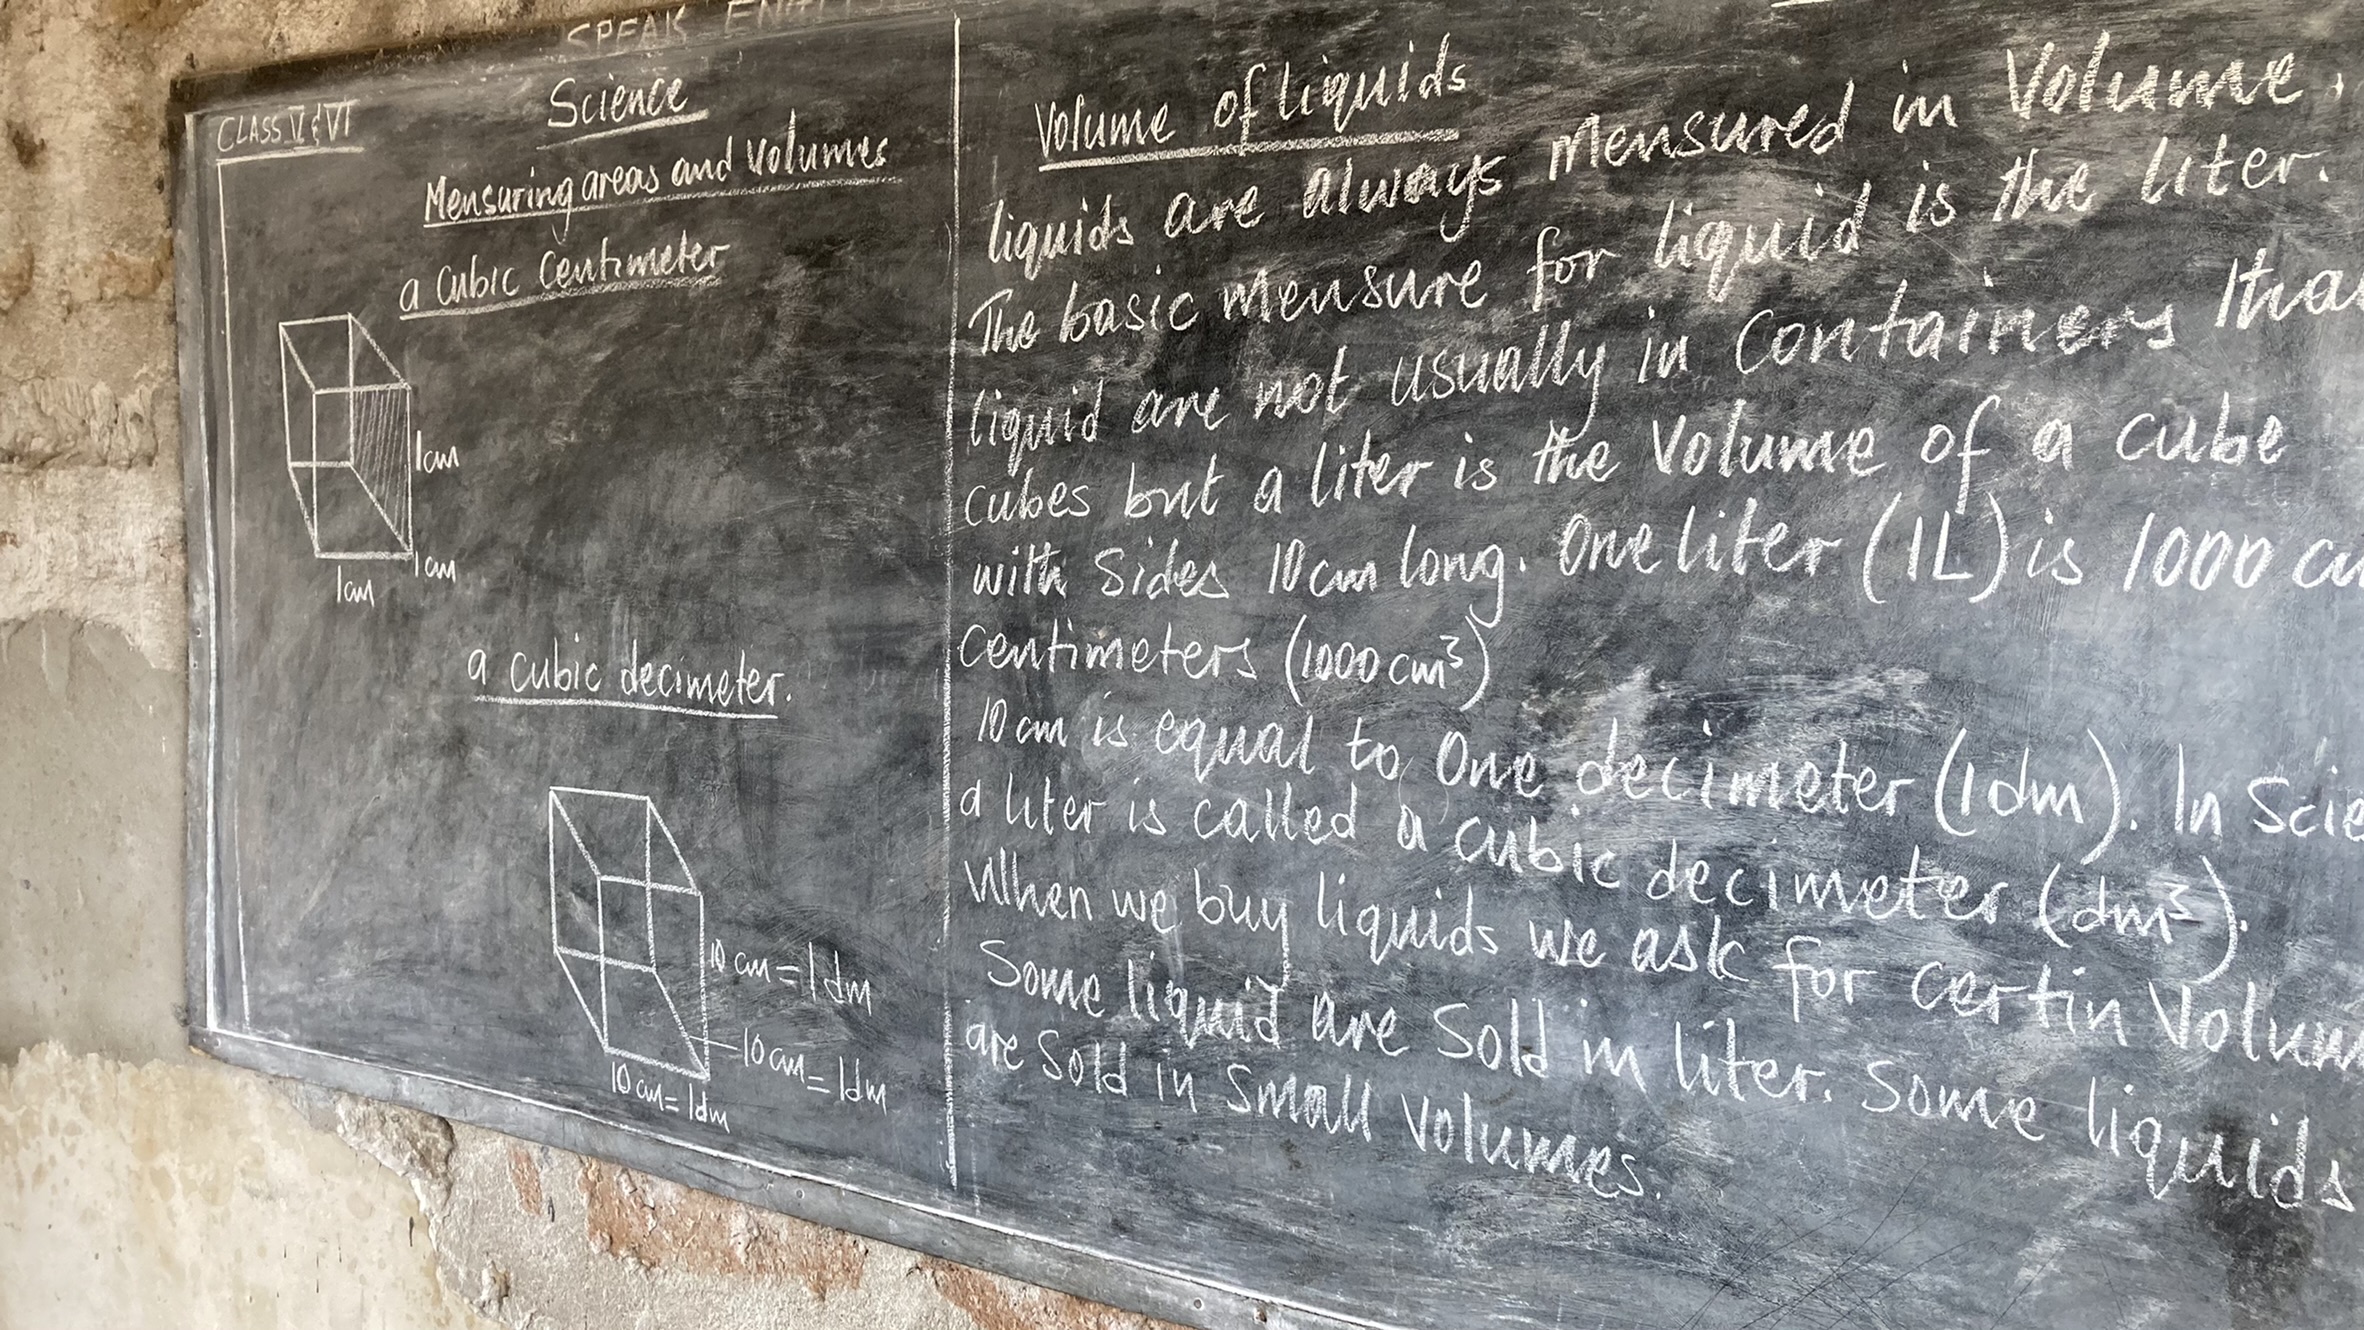 SPEAK
CLASS V & VI
Science
Mensuring areas and volumes
a cubic centimeter
1cm
1cm
1cm
a cubic decimeter.
10 cm = 1dm
10 cm = 1dm
10 cm = 1dm
Volume of liquids
liquids are always mensured in Volume.
The basic mensure for liquid is the liter.
liquid are not usually in containers
cubes but a liter is the Volume of a cube
with sides 10 cm long. One liter (1L) is 1000
centimeters (1000 cm³)
10 cm is equal to One decimeter (1 dm). In
a liter is called a cubic decimeter (dm³).
When we buy liquids we ask for certin
Some liquid are sold in liter. Some liquids
are sold in small volumes.